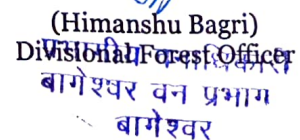 (Himanshu Bagri)
Divisional Forest Officer
प्रभागीय वनाधिकारी
बागेश्वर वन प्रभाग
बागेश्वर